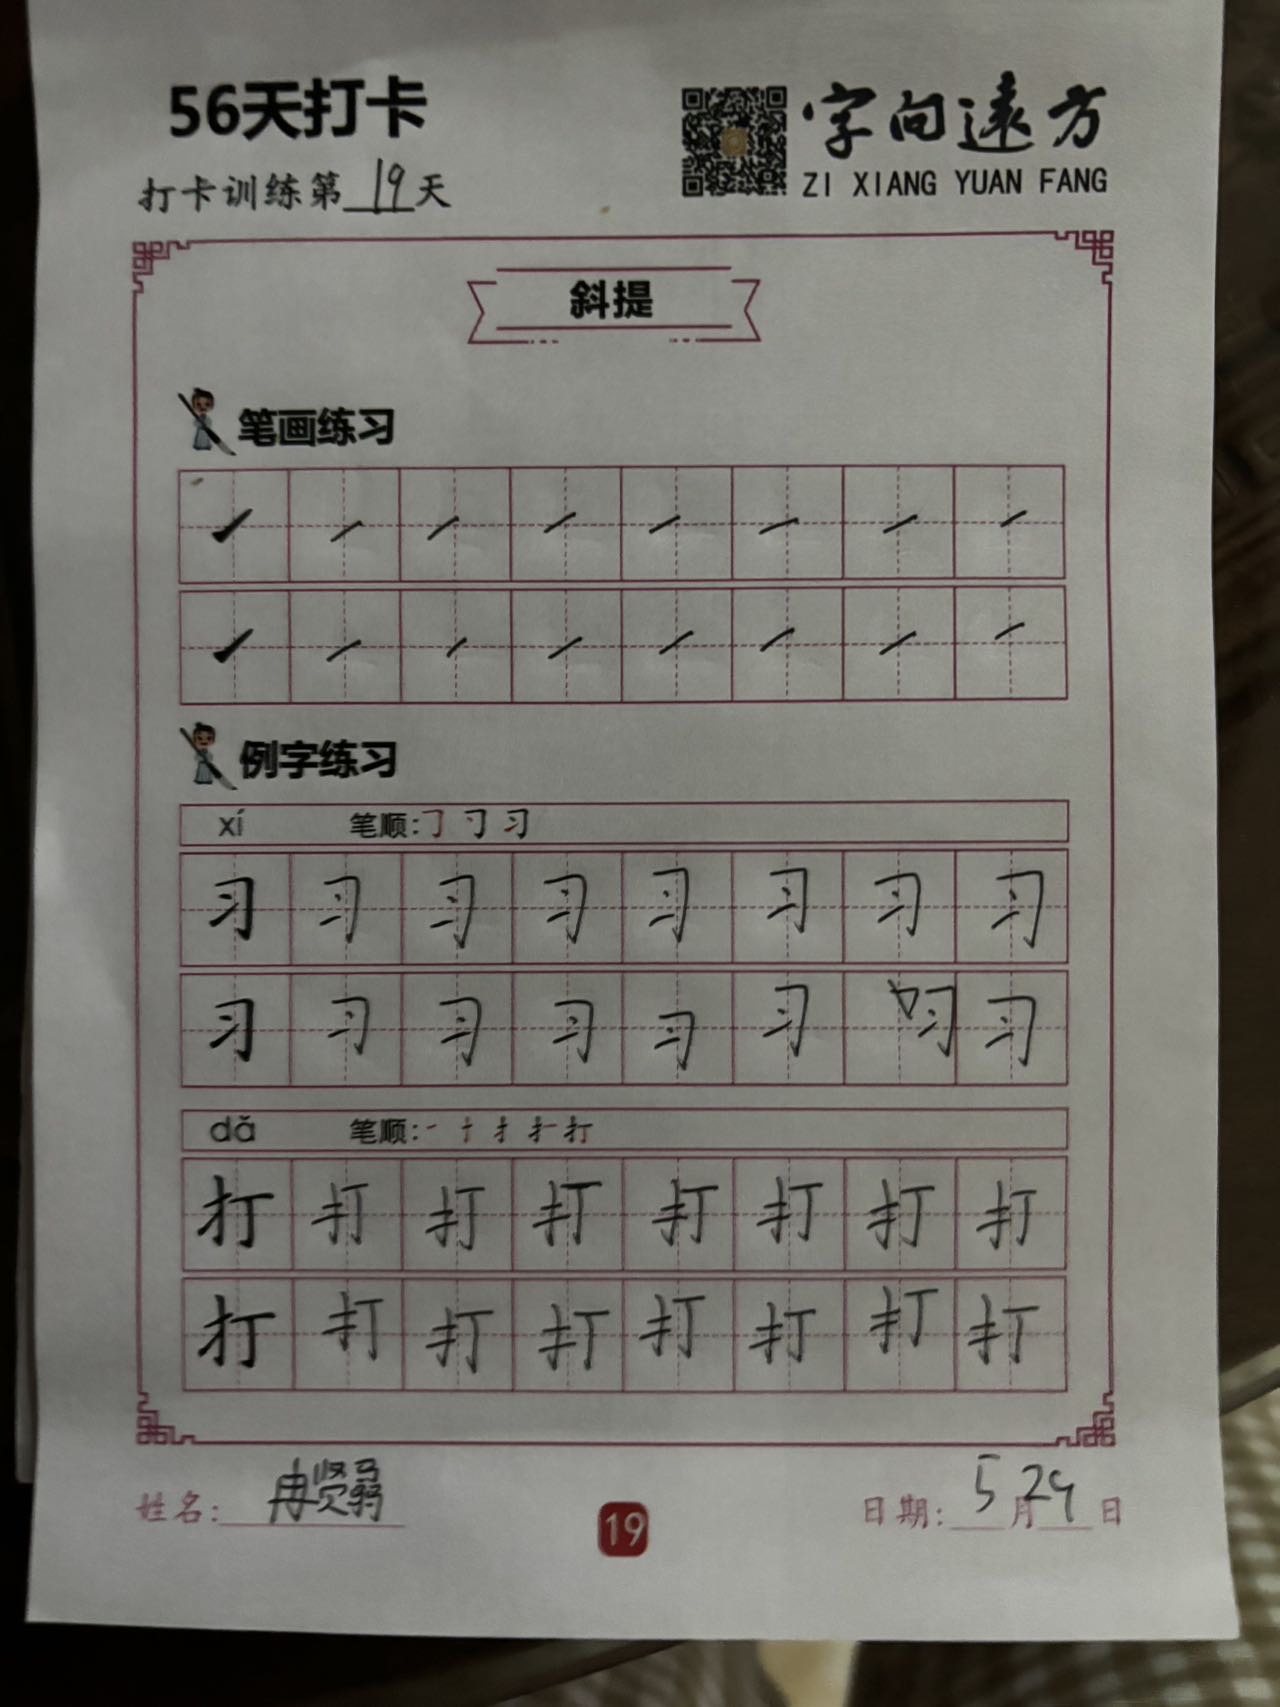 56天打卡
字向遠方
打卡训练第19天
ZI XIANG YUAN FANG
斜提
笔画练习
例字练习
xí 笔顺:
习 习 习 习 习 习 习 习
习 习 习 习 习 习 习 习
dǎ 笔顺:
打 打 打 打 打 打 打 打
打 打 打 打 打 打 打 打
姓名: 冉贤骉
19
日期: 5月29日